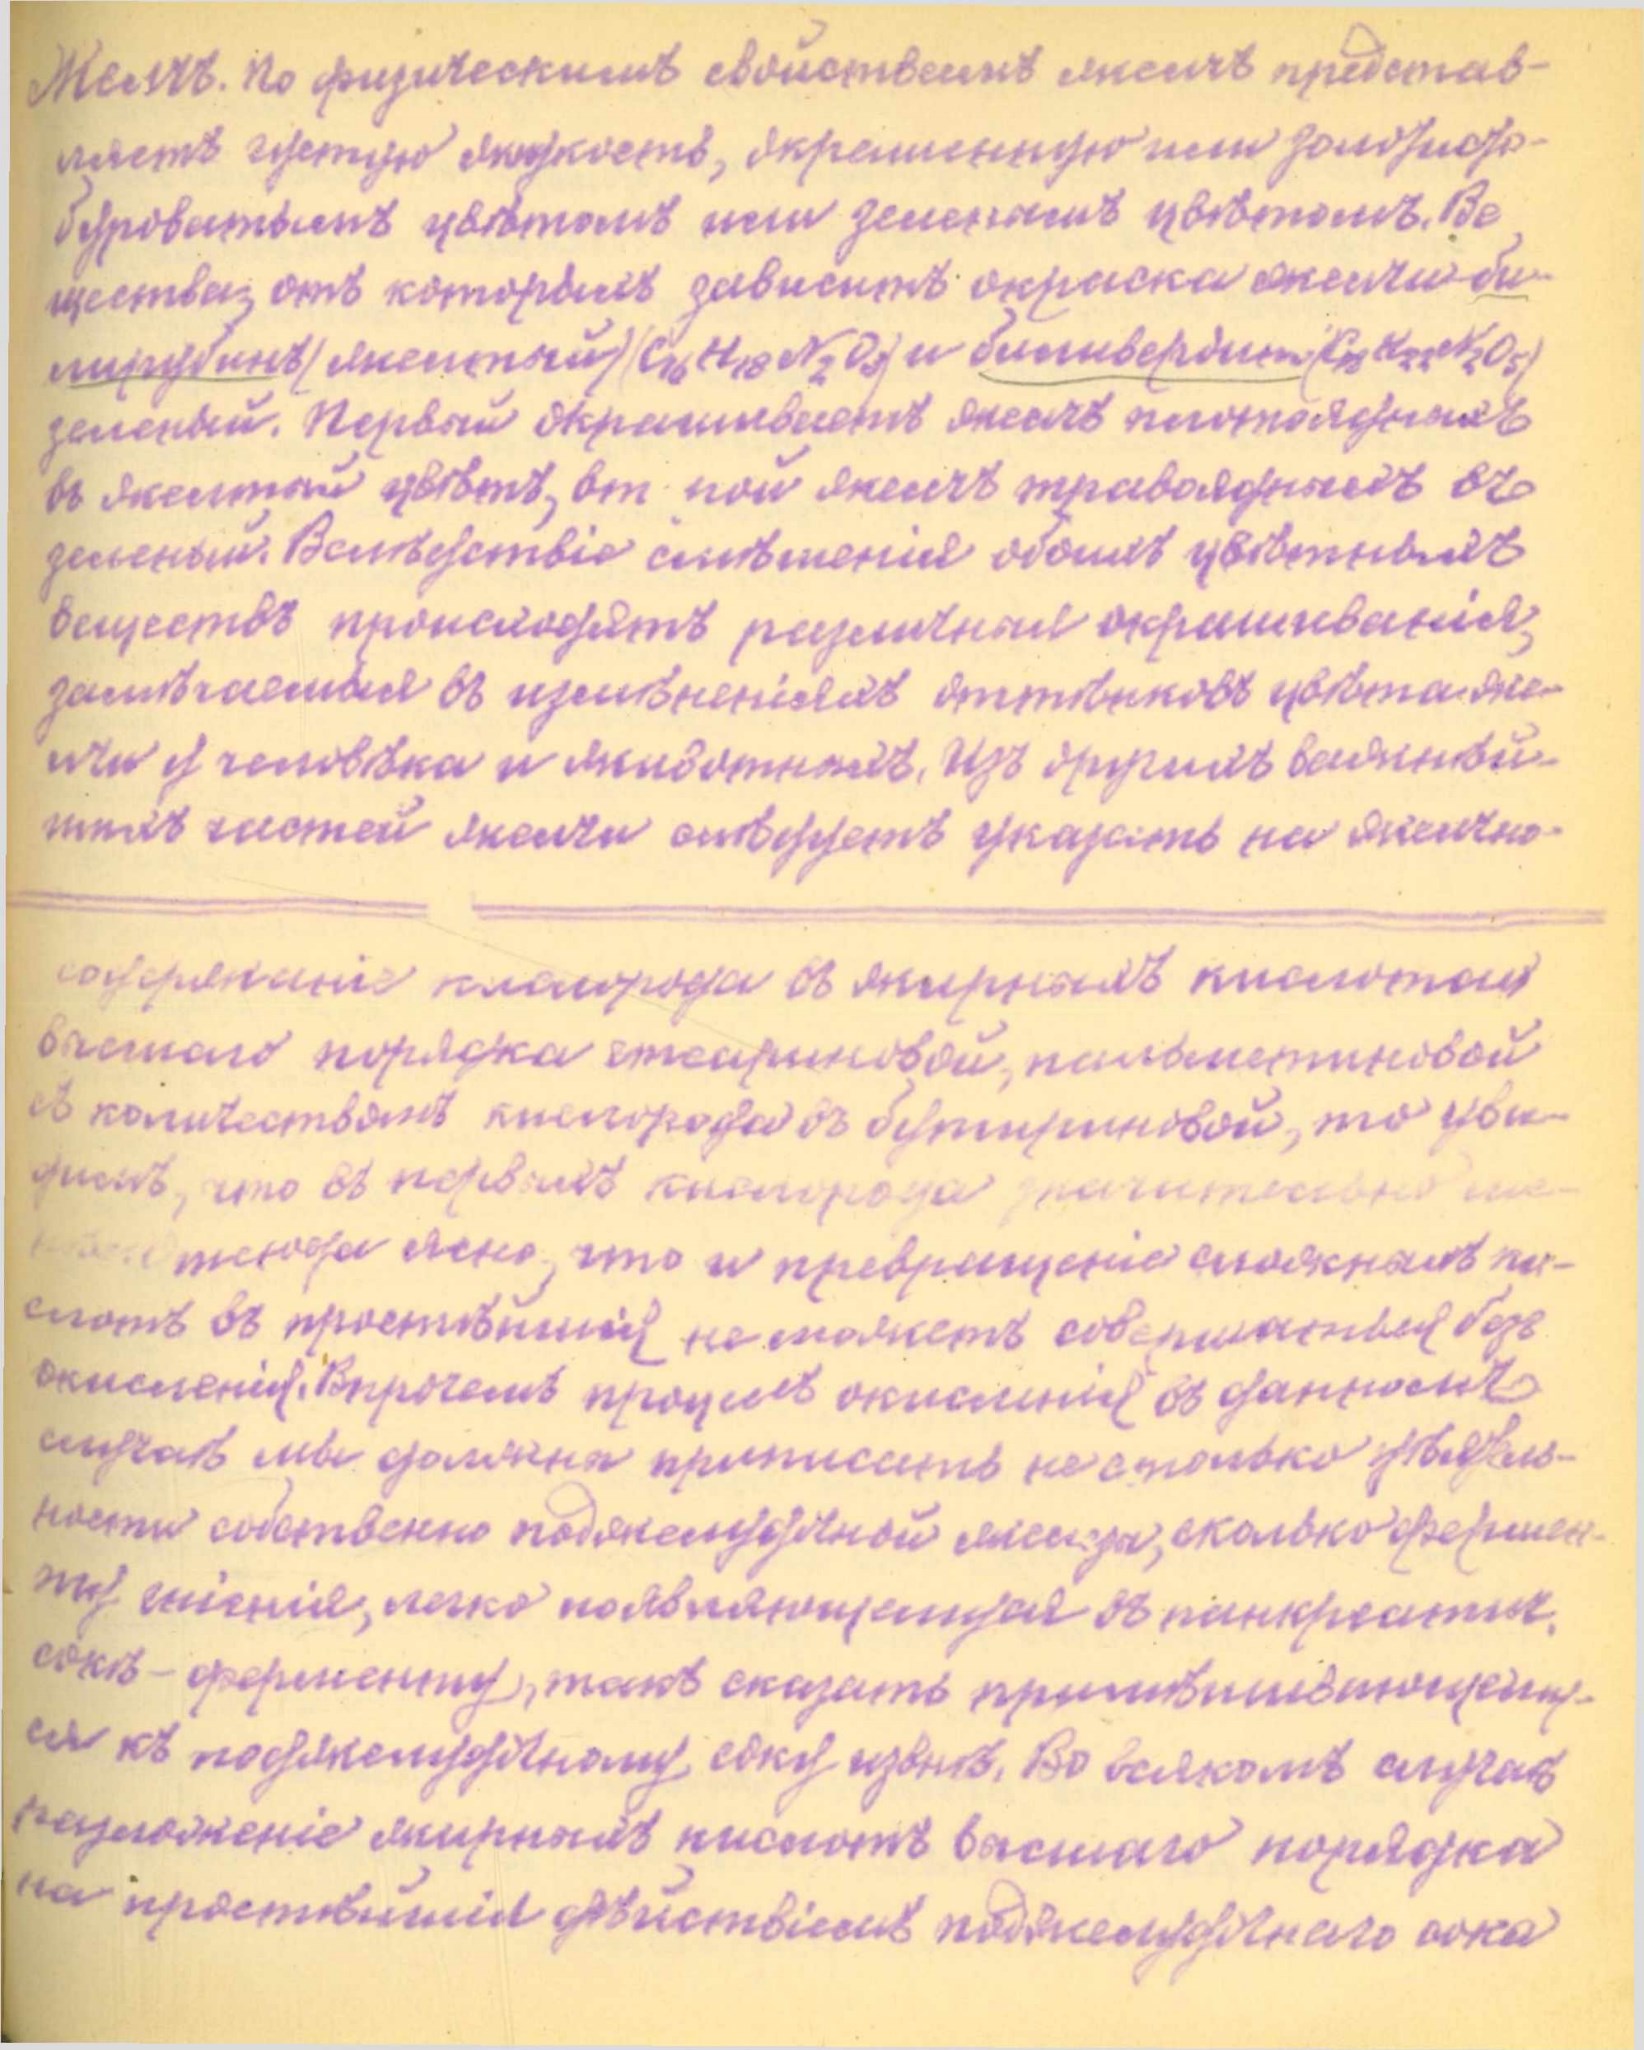 Желчь. По физическимъ свойствамъ желчь представ-
ляетъ густую жидкость, окрашенную или
буроватымъ цвѣтомъ или зеленымъ цвѣтомъ. Ве
щества, отъ которыхъ зависитъ окраска желчи би-
лирубинъ (желтый) (C16 H18 N2 O3) и биливердинъ
зеленый. Первый окрашиваетъ желчь плотоядныхъ
въ желтый цвѣтъ, вт рой желчь травоядныхъ въ
зеленый. Вслѣдствіе смѣшенія обоихъ цвѣтныхъ
веществъ происходятъ различныя окрашиванія,
замѣчаемыя въ измѣненіяхъ оттѣнковъ цвѣта же-
лчи у человѣка и животныхъ. Изъ другихъ важнѣй-
шихъ частей желчи слѣдуетъ указать на желчно-
содержаніе кислорода въ жирныхъ кислотахъ
высшаго порядка стеариновой, пальметиновой
съ количествомъ кислорода въ бутириновой, то уви-
димъ, что въ первыхъ кислорода значительно ме-
тсюда ясно, что и превращеніе сложныхъ ки-
слотъ въ простѣйшія не можетъ совершаться безъ
окисленія. Впрочемъ процессъ окисленія въ данномъ
случаѣ мы должны приписать не столько дѣятель-
ности собственно поджелудочной железы, сколько фермен-
ту гніенія, легко появляющемуся въ панкреатич.
сокѣ - ферменту, такъ сказать примѣшивающему-
ся къ поджелудочному соку извнѣ. Во всякомъ случаѣ
разложеніе жирныхъ кислотъ высшаго порядка
на простѣйшія дѣйствіемъ поджелудочнаго сока